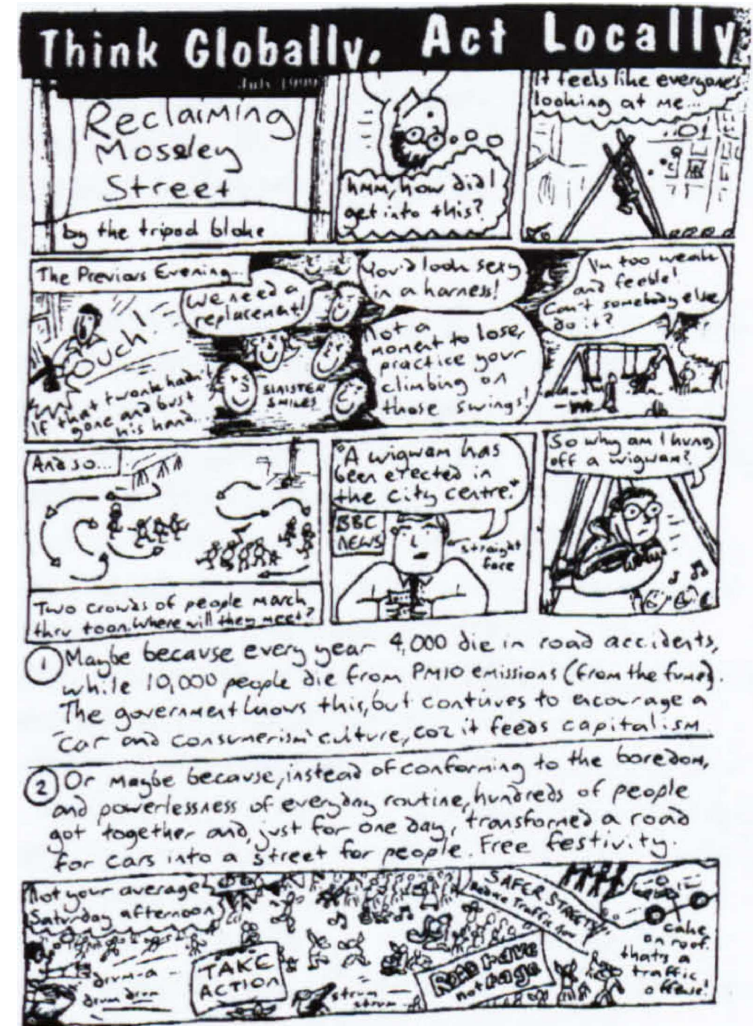 Think Globally, Act Locally
July 1999
Reclaiming
Moseley
Street
by the tripod bloke
hmm, how did I
get into this?
It feels like everyone's
looking at me...
The Previous Evening...
Ouch!
If that twonk hadn't
gone and bust
his hand...
We need a
replacement!
You'd look sexy
in a harness!
SINISTER
SMILES
Not a
moment to lose,
practice your
climbing on
those swings!
I'm too weak
and feeble!
Can't somebody else
do it?
And so...
Two crowds of people march
thru toon. Where will they meet?
"A wigwam has
been erected in
the city centre."
BBC
NEWS
straight
face
So why am I hung
off a wigwam?
1 Maybe because every year 4,000 die in road accidents,
while 10,000 people die from PM10 emissions (from the fumes).
The government knows this, but continues to encourage a
'car and consumerism' culture, coz it feeds capitalism
2 Or maybe because, instead of conforming to the boredom,
and powerlessness of everyday routine, hundreds of people
got together and, just for one day, transformed a road
for cars into a street for people. Free festivity.
Not your average
Saturday afternoon
drum-a
drum drum
TAKE
ACTION
strum
strum
SAFER STREETS
Reduce Traffic now
Road Rave
not rage
cake
on roof.
thats a
traffic
offense!